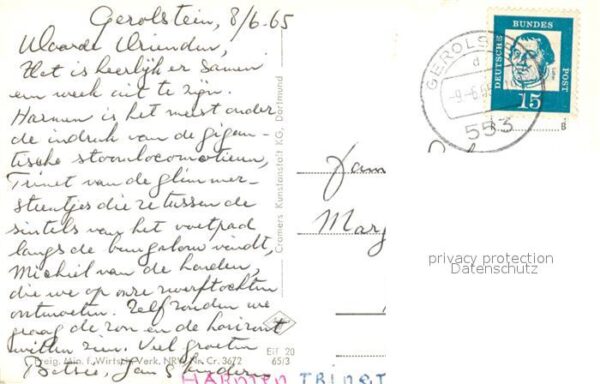 Gerolstein, 8/6.65
Waarde Vrienden,
Het is heerlijk er samen
een week uit te zijn.
Harmen is het meest onder
de indruk van de gigan-
tische stoomlocomotieven,
Trinet van de glimmer-
steentjes die ze tussen de
sintels van het voetpad
langs de bungalow vindt,
Michiel van de honden,
die we op onze zwerftochten
ontmoeten. Zelf zouden we
graag de zon en de horizont
willen zien. Veel groeten
Betsie, Jan & kinderen
HARMEN TRINET
Cramers Kunstanstalt KG, Dortmund
Freig. Min. f. Wirtsch. Verk. NRW. Nr. Cr. 3672
Eif 20
65/3
DEUTSCHE
BUNDES
POST
15
GEROLSTEIN
d
-9.-6.65
553
8
Fam
privacy protection
Datenschutz